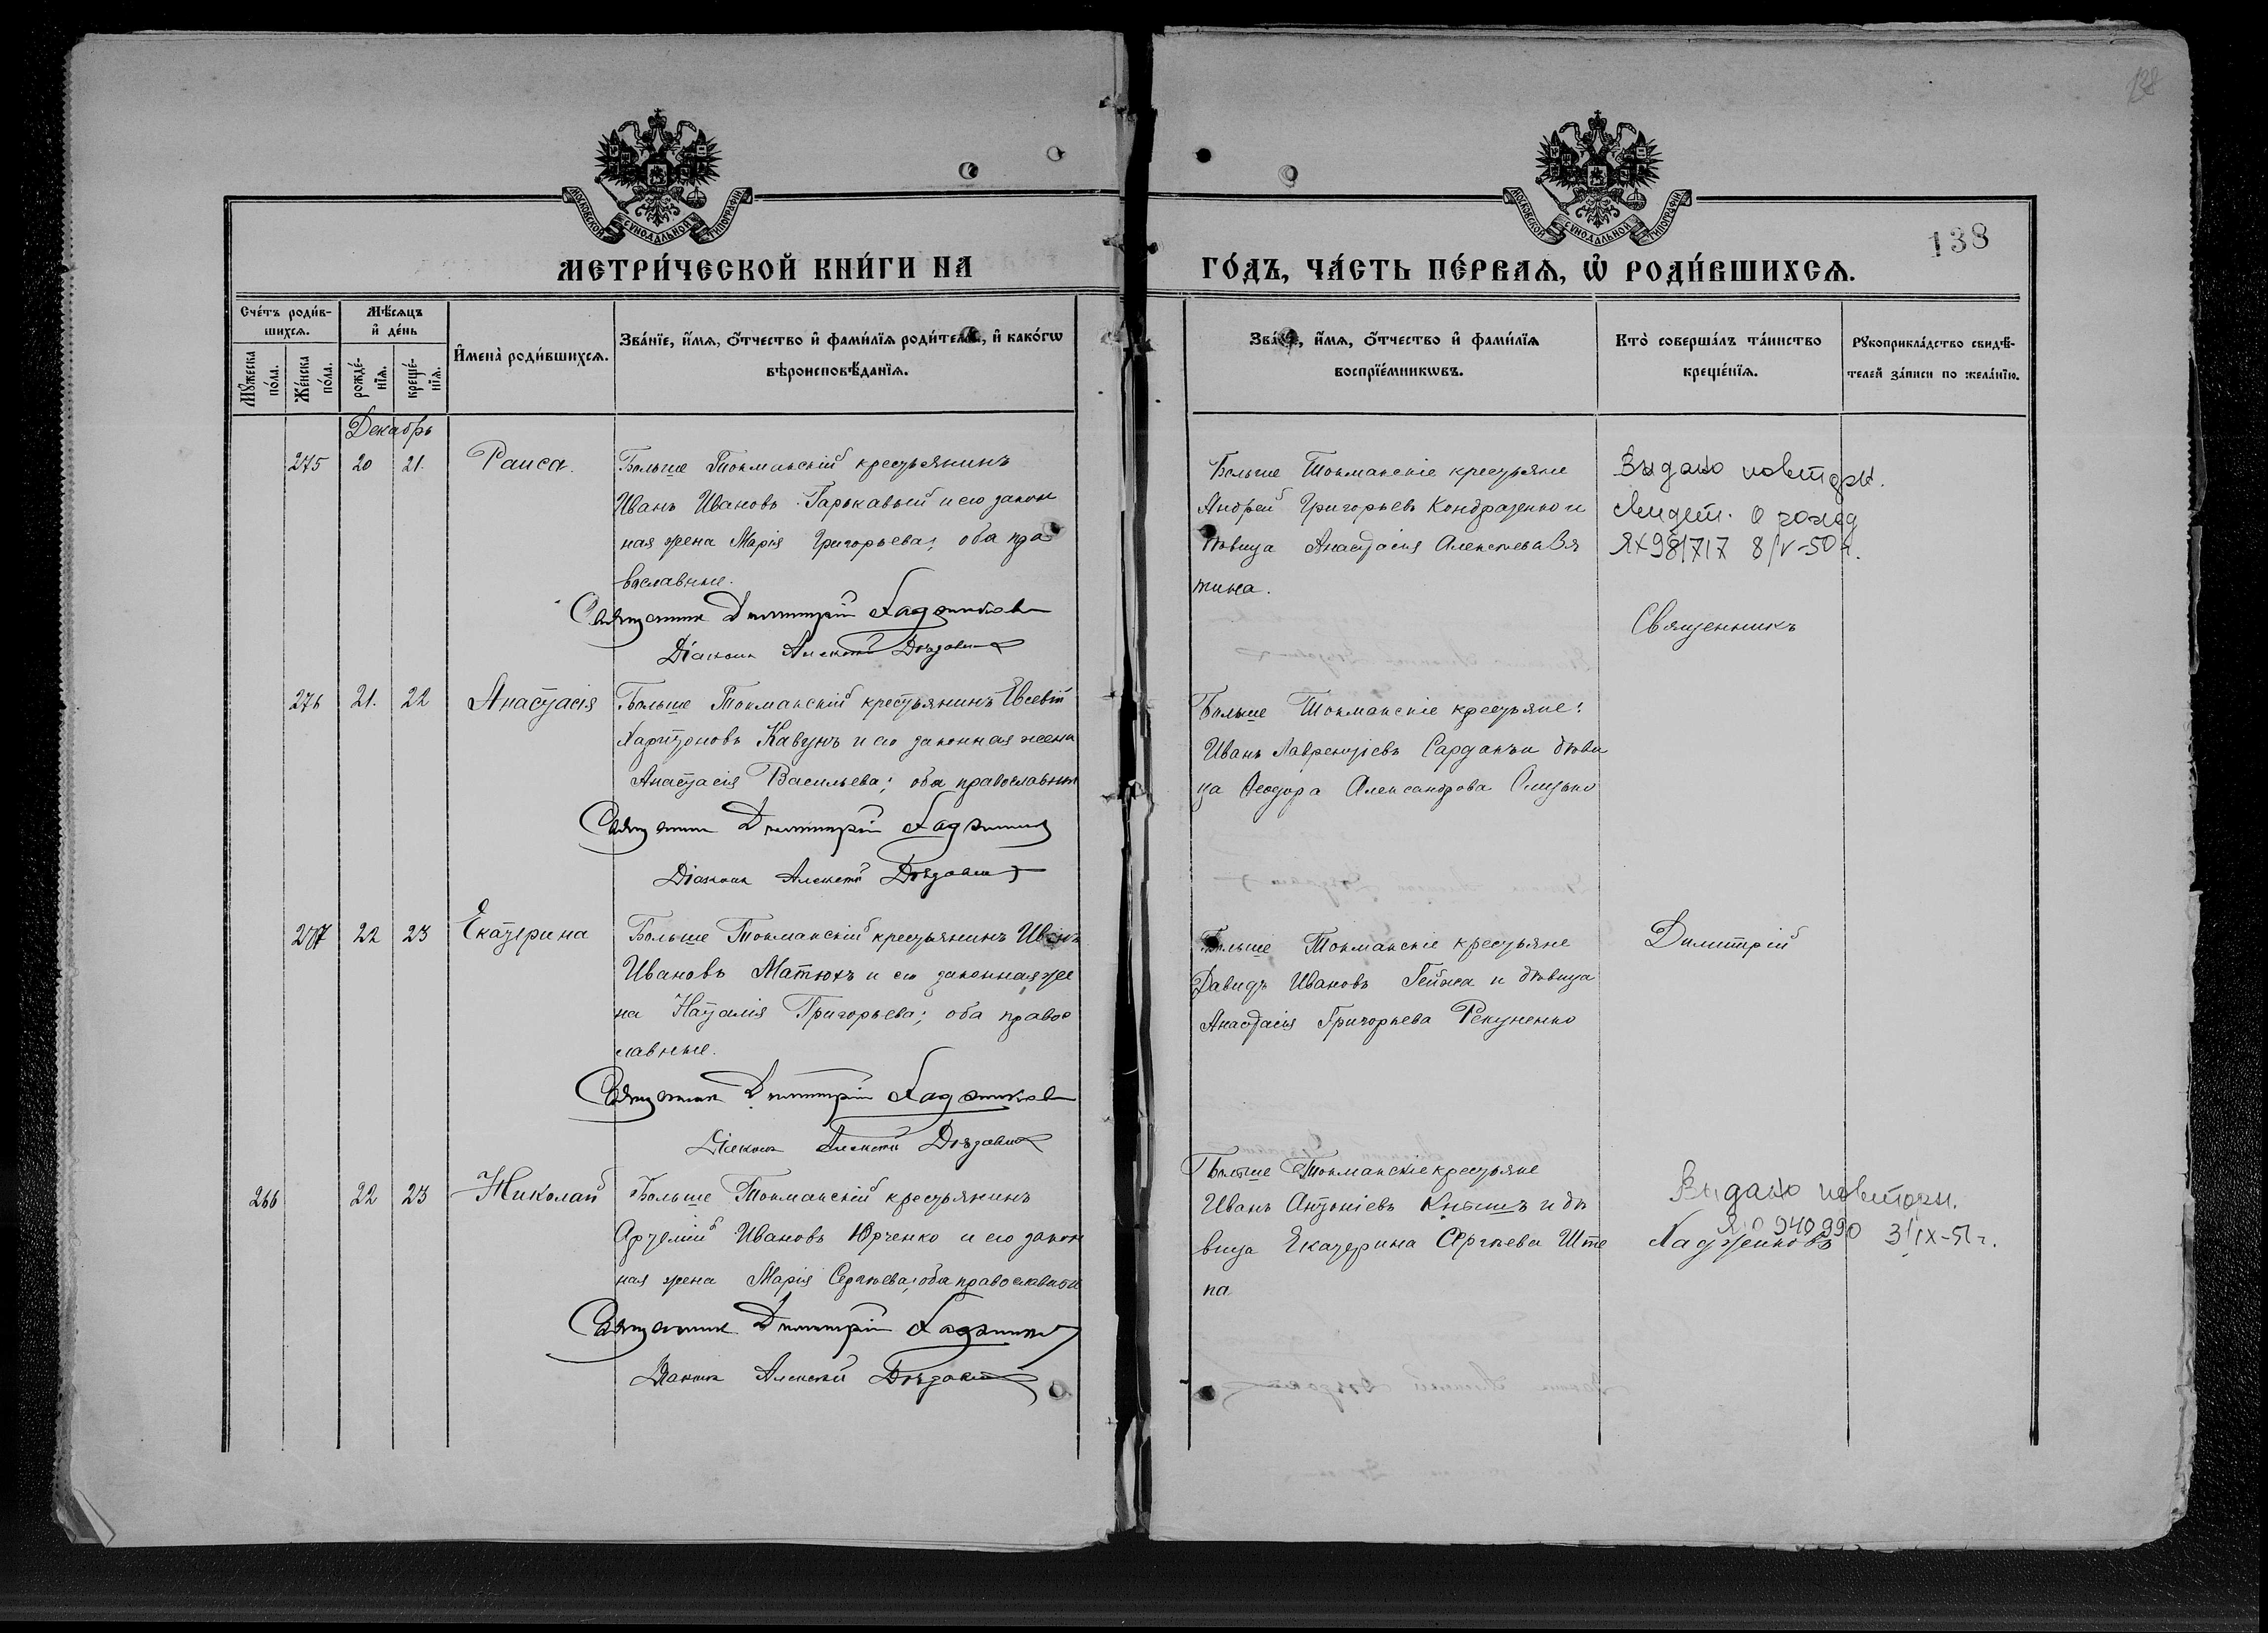 138
МОСКОВСКОЙ СѴНОДАЛЬНОЙ ТИПОГРАФІИ
МОСКОВСКОЙ СѴНОДАЛЬНОЙ ТИПОГРАФІИ
138
МЕТРИ́ЧЕСКОЙ КНИ́ГИ НА
ГО́ДЪ, ЧА́СТЬ ПЕ́РВАѦ, Ѡ҆ РОДИ́ВШИХСѦ.
Сче́тъ роди́в-
шихсѧ.
Мꙋ́жеска по́ла.
Же́нска по́ла.
Мѣ́сѧцъ
и҆ де́нь
рожде́-нїѧ.
креще́-нїѧ.
И҆мена̀ роди́вшихсѧ.
Зва́нїе, и҆́мѧ, ѻ҆́тчество и҆ фами́лїѧ роди́телей, и҆ како́гѡ
вѣроисповѣ́данїѧ.
Зва́нїе, и҆́мѧ, ѻ҆́тчество и҆ фами́лїѧ
воспрїе́мникѡвъ.
Кто̀ соверша́лъ та́инство
креще́нїѧ.
Рꙋкоприкла́дство свидѣ́-
телей за́писи по жела́нїю.
Декабрь
275 20 21. Раиса.
Больше Токмакскій крестьянинъ
Иванъ Ивановъ Гаркавый и его закон
ная жена Марія Григорьева; оба пра
вославные.
Священник Димитрій Хаджинов
Діакон Алексѣй
Больше Токмакскіе крестьяне
Андрей Григорьевъ Кондратенко и
дѣвица Анастасія Алексѣева Вя
тина.
Выдано повторн.
свидет. о рожд
ЯХ981717 8/V-50 г.
Священникъ
276 21. 22 Анастасія
Больше Токмакскій крестьянинъ Евсевій
Харитоновъ Кавунъ и его законная жена
Анастасія Васильева; оба православны
Священник Димитрій
Діакон Алексѣй
Больше Токмакскіе крестьяне:
Иванъ Лаврентіевъ Сардакъ и дѣви
ца Ѳеодора Александрова Слизько
277 22 23 Екатерина
Больше Токмакскій крестьянинъ Иванъ
Ивановъ Матюхъ и его законная же
на Наталія Григорьева; оба правос
лавные.
Священник Димитрій Хаджинов
Діакон Алексѣй
Больше Токмакскіе крестьяне
Давидъ Ивановъ Гейжа и дѣвица
Анастасія Григорьева Рекуненко
Димитрій
266 22 23 Николай
Больше Токмакскій крестьянинъ
Артемій Ивановъ Юрченко и его закон
ная жена Марія Сергѣева; оба православные
Священник Димитрій
Діакон Алексѣй
Больше Токмакскіе крестьяне
Иванъ Антоніевъ Кнышъ и дѣ
вица Екатерина СергѣеваШте
па
Выдано повторн.
940990 3/IX-51 г.
Хаджиновъ